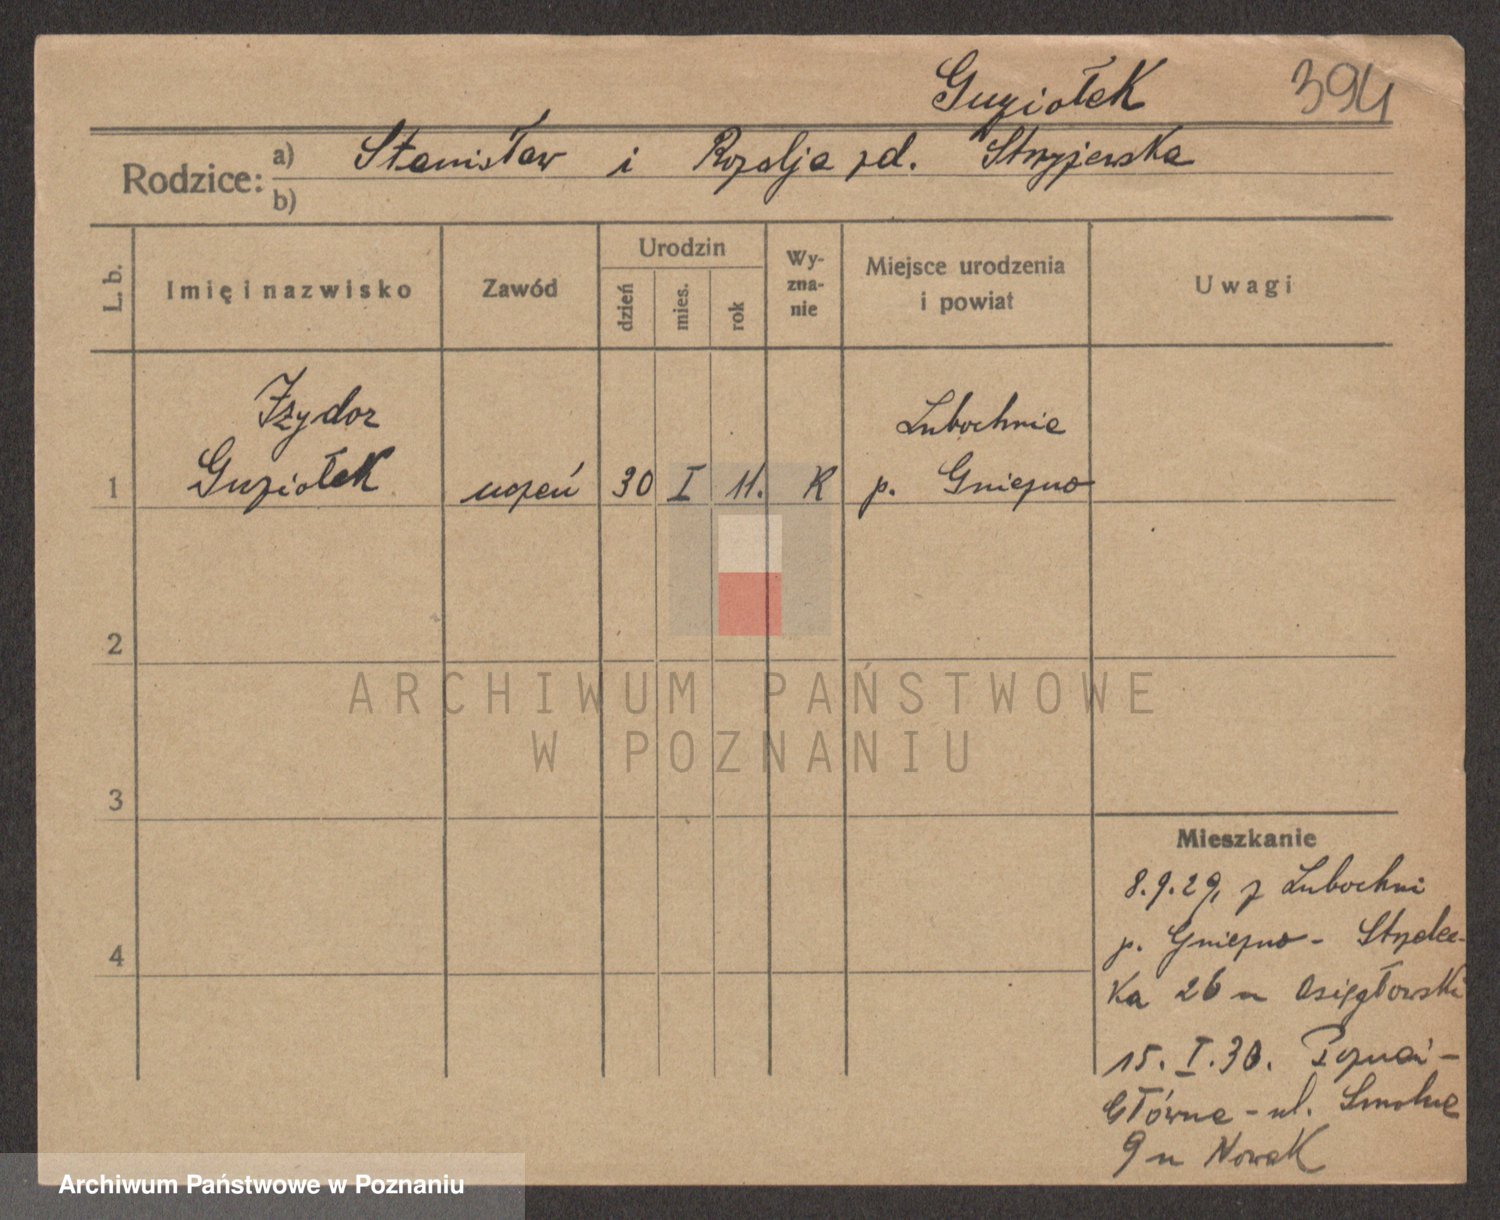 Guziołek 394
Rodzice: a) Stanisław i Rozalja zd. Stryjewska
b)
L. b. Imię i nazwisko Zawód Urodzin dzień mies. rok Wyzna-nie Miejsce urodzenia i powiat Uwagi
Izydor Lubochnie
1 Guziołek uczeń 30 I 11. K p. Gniezno
2
ARCHIWUM PAŃSTWOWE
W POZNANIU
3
4
Mieszkanie
8.9.29, z Lubochni
p. Gniezno - Strzelec-
ka 26 u
15. I. 30. Poznań -
Główna - ul. Smolna
9 u Nowak
Archiwum Państwowe w Poznaniu